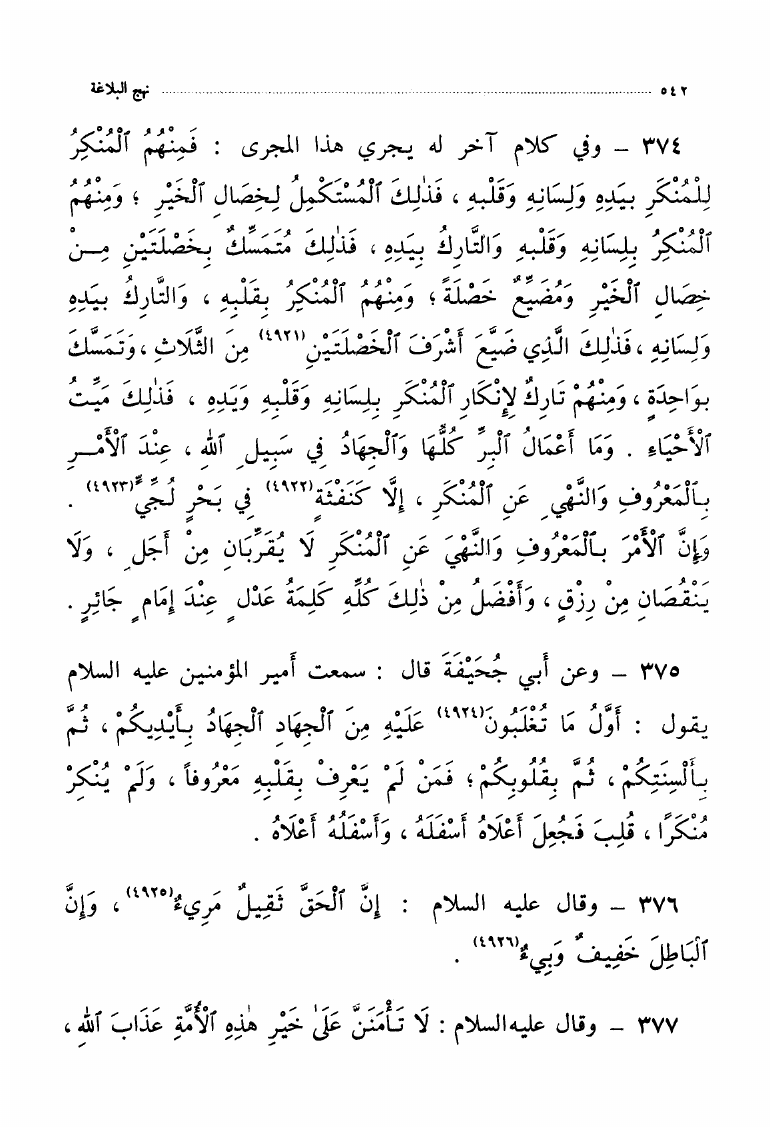 ٥٤٢ ........ نهج البلاغة
٣٧٤ – وفي كلام آخر له يجري هذا المجرى : فَمِنْهُمُ ٱلْمُنْكِرُ
لِلْمُنْكَرِ بِيَدِهِ وَلِسَانِهِ وَقَلْبِهِ ، فَذٰلِكَ ٱلْمُسْتَكْمِلُ لِخِصَالِ ٱلْخَيْرِ ؛ وَمِنْهُمُ
ٱلْمُنْكِرُ بِلِسَانِهِ وَقَلْبِهِ وَالتَّارِكُ بِيَدِهِ ، فَذٰلِكَ مُتَمَسِّكٌ بِخَصْلَتَيْنِ مِنْ
خِصَالِ ٱلْخَيْرِ وَمُضَيِّعٌ خَصْلَةً ؛ وَمِنْهُمُ ٱلْمُنْكِرُ بِقَلْبِهِ ، وَالتَّارِكُ بِيَدِهِ
وَلِسَانِهِ ، فَذٰلِكَ الَّذِي ضَيَّعَ أَشْرَفَ ٱلْخَصْلَتَيْنِ (٤٩٢١) مِنَ الثَّلَاثِ ، وَتَمَسَّكَ
بِوَاحِدَةٍ ، وَمِنْهُمْ تَارِكٌ لِإِنْكَارِ ٱلْمُنْكَرِ بِلِسَانِهِ وَقَلْبِهِ وَيَدِهِ ، فَذٰلِكَ مَيِّتُ
ٱلْأَحْيَاءِ . وَمَا أَعْمَالُ ٱلْبِرِّ كُلُّهَا وَٱلْجِهَادُ فِي سَبِيلِ ٱللهِ ، عِنْدَ ٱلْأَمْرِ
بِٱلْمَعْرُوفِ وَالنَّهْيِ عَنِ ٱلْمُنْكَرِ ، إِلَّا كَنَفْثَةٍ (٤٩٢٢) فِي بَحْرٍ لُجِّيٍّ (٤٩٢٣) .
وَإِنَّ ٱلْأَمْرَ بِٱلْمَعْرُوفِ وَالنَّهْيَ عَنِ ٱلْمُنْكَرِ لَا يُقَرِّبَانِ مِنْ أَجَلٍ ، وَلَا
يَنْقُصَانِ مِنْ رِزْقٍ ، وَأَفْضَلُ مِنْ ذٰلِكَ كُلِّهِ كَلِمَةُ عَدْلٍ عِنْدَ إِمَامٍ جَائِرٍ .
٣٧٥ – وعن أبي جُحَيْفَةَ قال : سمعت أمير المؤمنين عليه السلام
يقول : أَوَّلُ مَا تُغْلَبُونَ (٤٩٢٤) عَلَيْهِ مِنَ ٱلْجِهَادِ ٱلْجِهَادُ بِأَيْدِيكُمْ ، ثُمَّ
بِأَلْسِنَتِكُمْ ، ثُمَّ بِقُلُوبِكُمْ ؛ فَمَنْ لَمْ يَعْرِفْ بِقَلْبِهِ مَعْرُوفاً ، وَلَمْ يُنْكِرْ
مُنْكَرًا ، قُلِبَ فَجُعِلَ أَعْلَاهُ أَسْفَلَهُ ، وَأَسْفَلُهُ أَعْلَاهُ .
٣٧٦ – وقال عليه السلام : إِنَّ ٱلْحَقَّ ثَقِيلٌ مَرِيءٌ (٤٩٢٥) ، وَإِنَّ
ٱلْبَاطِلَ خَفِيفٌ وَبِيءٌ (٤٩٢٦) .
٣٧٧ – وقال عليه السلام : لَا تَأْمَنَنَّ عَلَىٰ خَيْرِ هٰذِهِ ٱلْأُمَّةِ عَذَابَ ٱللهِ ،